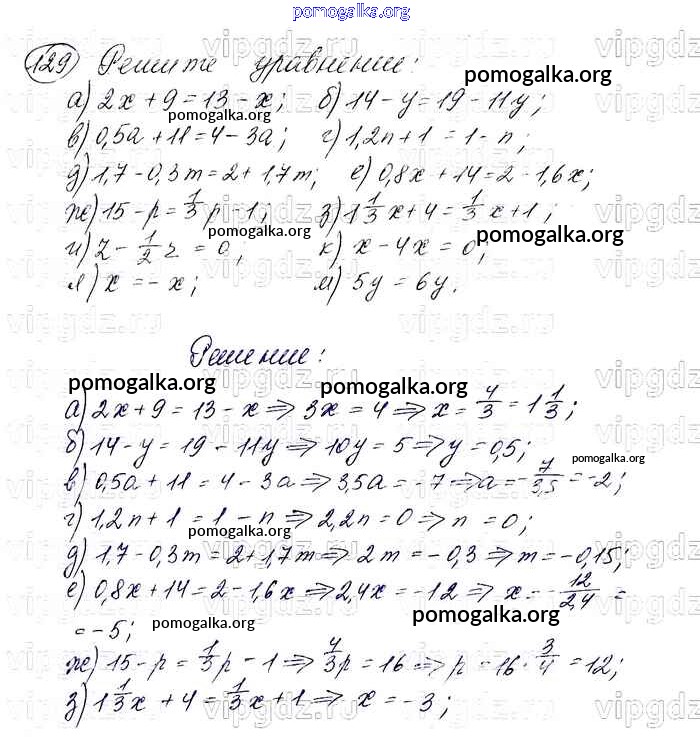 pomogalka.org
129 Решите уравнение:
pomogalka.org
а) 2x + 9 = 13 - x; б) 14 - y = 19 - 11y;
pomogalka.org
в) 0,5a + 11 = 4 - 3a; г) 1,2n + 1 = 1 - n;
д) 1,7 - 0,3m = 2 + 1,7m; е) 0,8x + 14 = 2 - 1,6x;
ж) 15 - p = 1/3 p - 1; з) 1 1/3 x + 4 = 1/3 x + 1;
pomogalka.org pomogalka.org
и) z - 1/2 z = 0; к) x - 4x = 0;
л) x = -x; м) 5y = 6y.
vipgdz.ru vipgdz.ru vipgdz.ru
Решение:
pomogalka.org pomogalka.org
а) 2x + 9 = 13 - x ⇒ 3x = 4 ⇒ x = 4/3 = 1 1/3;
б) 14 - y = 19 - 11y ⇒ 10y = 5 ⇒ y = 0,5;
pomogalka.org
в) 0,5a + 11 = 4 - 3a ⇒ 3,5a = -7 ⇒ a = -7/3,5 = -2;
г) 1,2n + 1 = 1 - n ⇒ 2,2n = 0 ⇒ n = 0;
pomogalka.org
д) 1,7 - 0,3m = 2 + 1,7m ⇒ 2m = -0,3 ⇒ m = -0,15;
е) 0,8x + 14 = 2 - 1,6x ⇒ 2,4x = -12 ⇒ x = -12/2,4 =
= -5;
pomogalka.org pomogalka.org
ж) 15 - p = 1/3 p - 1 ⇒ 4/3 p = 16 ⇒ p = 16 · 3/4 = 12;
з) 1 1/3 x + 4 = 1/3 x + 1 ⇒ x = -3;